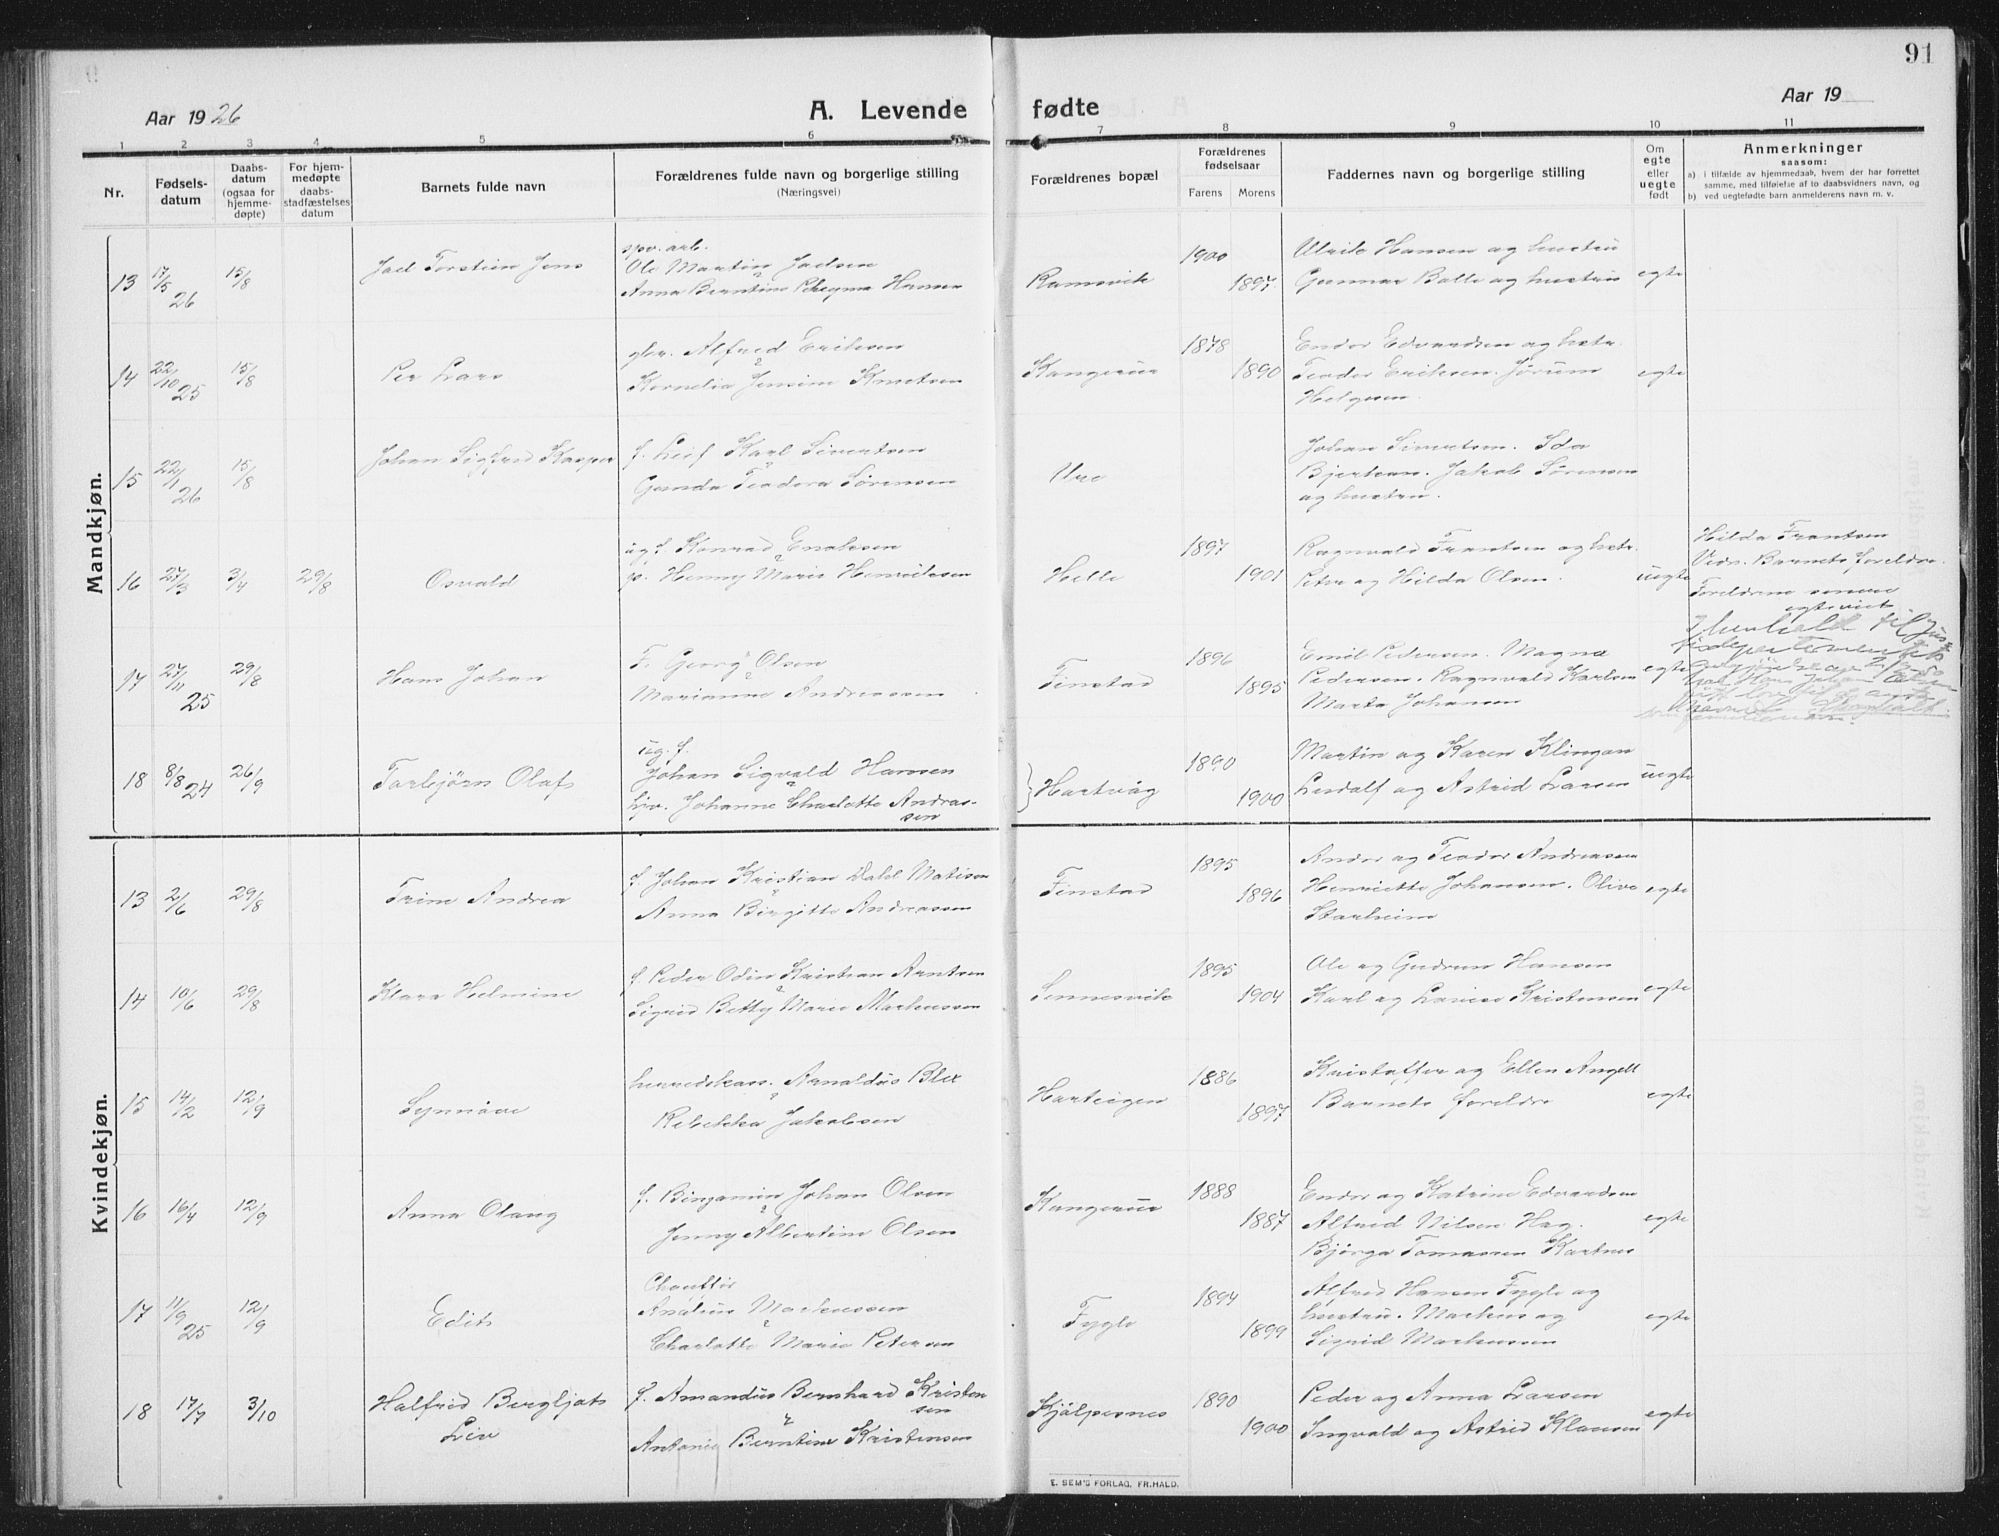 91
Aar 1926
A. Levende fødte
Aar 19
1 2 3 4 5 6 7 8 9 10 11
Nr.
Fødsels-
datum
Daabs-
datum
(ogsaa for
hjemme-
døpte)
For hjem-
medøpte
daabs-
stadfæstelses
datum
Barnets fulde navn
Forældrenes fulde navn og borgerlige stilling
(Næringsvei)
Forældrenes bopæl
Forældrenes
fødselsaar
Farens Morens
Faddernes navn og borgerlige stilling
Om
egte
eller
uegte
født
Anmerkninger
saasom:
a) i tilfælde av hjemmedaab, hvem der har forrettet
samme, med tilføielse af to daabsvidners navn, og
b) ved uegtefødte barn anmelderens navn m. v.
Mandkjøn.
13 17/5 26 15/8 Jael Torstein Jens
spv. arb.
Ole Martin Jaelsen
Anna Berntine Hansen
Ramsvik 1900 1897
Ulrik Hansen og hustru
Gunnar Balle og hustru
egte
14 22/10 25 15/8 Per Lars
gbr. Alfred Eriksen
Kornelia Jensine Knutsen
Kangerur 1878 1890
Endor Edvardsen og hstr.
Teodor Eriksen. Jørum
Helgesen.
egte
15 22/1 26 15/8 Johan Sigfred Kasper
f. Leif Karl Sivertsen
Gunda Teodora Sørensen
Ure
Johan Sivertsen. Ida
Bjerkan. Jakob Sørensen
og hustru.
16 27/3 3/4 29/8 Osvald
ug. f. Konrad Enoksen
p. Henny Marie Henriksen
Helle 1897 1901
Ragnvald Frantsen og hstr.
Peter og Hilda Olsen.
uegte
Hilda Frantsen
Vidn. Barnets foreldre.
Foreldrene senere
egteviet
17 27/11 25 29/8 Hans Johan
F. Georg Olsen
Marianne Andreassen
Finstad 1896 1895
Emil Pedersen. Magna
Pedersen. Ragnvald Karlsen
Marta Johansen
egte
I henhold til
har Hans Johan Olsen
navnet
18 8/8 24 26/9 Torbjørn Olaf
ug. f.
Johan Sigvald Hansen
Johanne Charlotte Andreas-
sen
Hartvåg 1890 1900
Martin og Karen Klingan
Lerdalf og Astrid Larsen
uegte
Kvindekjøn.
13 2/6 29/8 Trine Andrea
f. Johan Kristian Dahl Matisen
Anna Birgitte Andreassen
Finstad 1895 1896
Andor og Teodor Andreassen
Henriette Johansen. Olive
Starheim
egte
14 10/6 29/8 Klara Helmine
f. Peder Odin Kristian Arntsen
Sigrid Betty Marie Markussen
Sennesvik 1895 1904
Ole og Gudrun Hansen
Karl og Lovise Kristensen
egte
15 14/2 12/9 Synnøve
herredskass. Arnoldus Blix
Rebekka Jakobsen
Hartvigen 1886 1897
Kristoffer og Ellen Angell
Barnets foreldre
egte
16 16/4 12/9 Anna Olaug
f. Bingamin Johan Olsen
Jenny Albertine Olsen
Kangerur 1888 1887
Endor og Katrine Edvardsen
Alfred Nilsen Hag.
Bjørga Tomassen Kartnes
egte
17 11/9 25 12/9 Edit
Chauffør
Analius Markussen
Charlotte Marie Petersen
Fygle 1894 1899
Alfred Hansen Fygle og
hustru. Markus og
Sigrid Markussen
egte
18 17/7 3/10 Halfrid Bergljot
Liv
f. Amandus Bernhard Kristen
sen
Antonie Berntine Kristensen
Kjålpesnes 1890 1900
Peder og Anna Larsen
Ingvald og Astrid Klausen
egte
E. SEM'S FORLAG, FR.HALD.